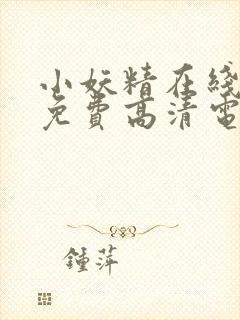 小妖精在綫
免費高清電
鍾萍